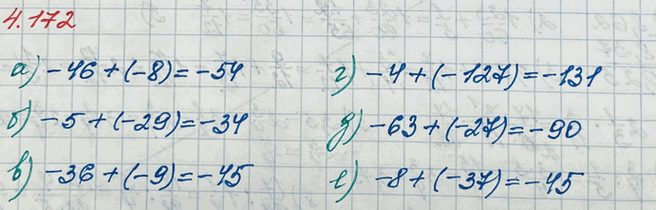 4.172
а) -46 + (-8) = -54
б) -5 + (-29) = -34
в) -36 + (-9) = -45
г) -4 + (-127) = -131
д) -63 + (-27) = -90
е) -8 + (-37) = -45